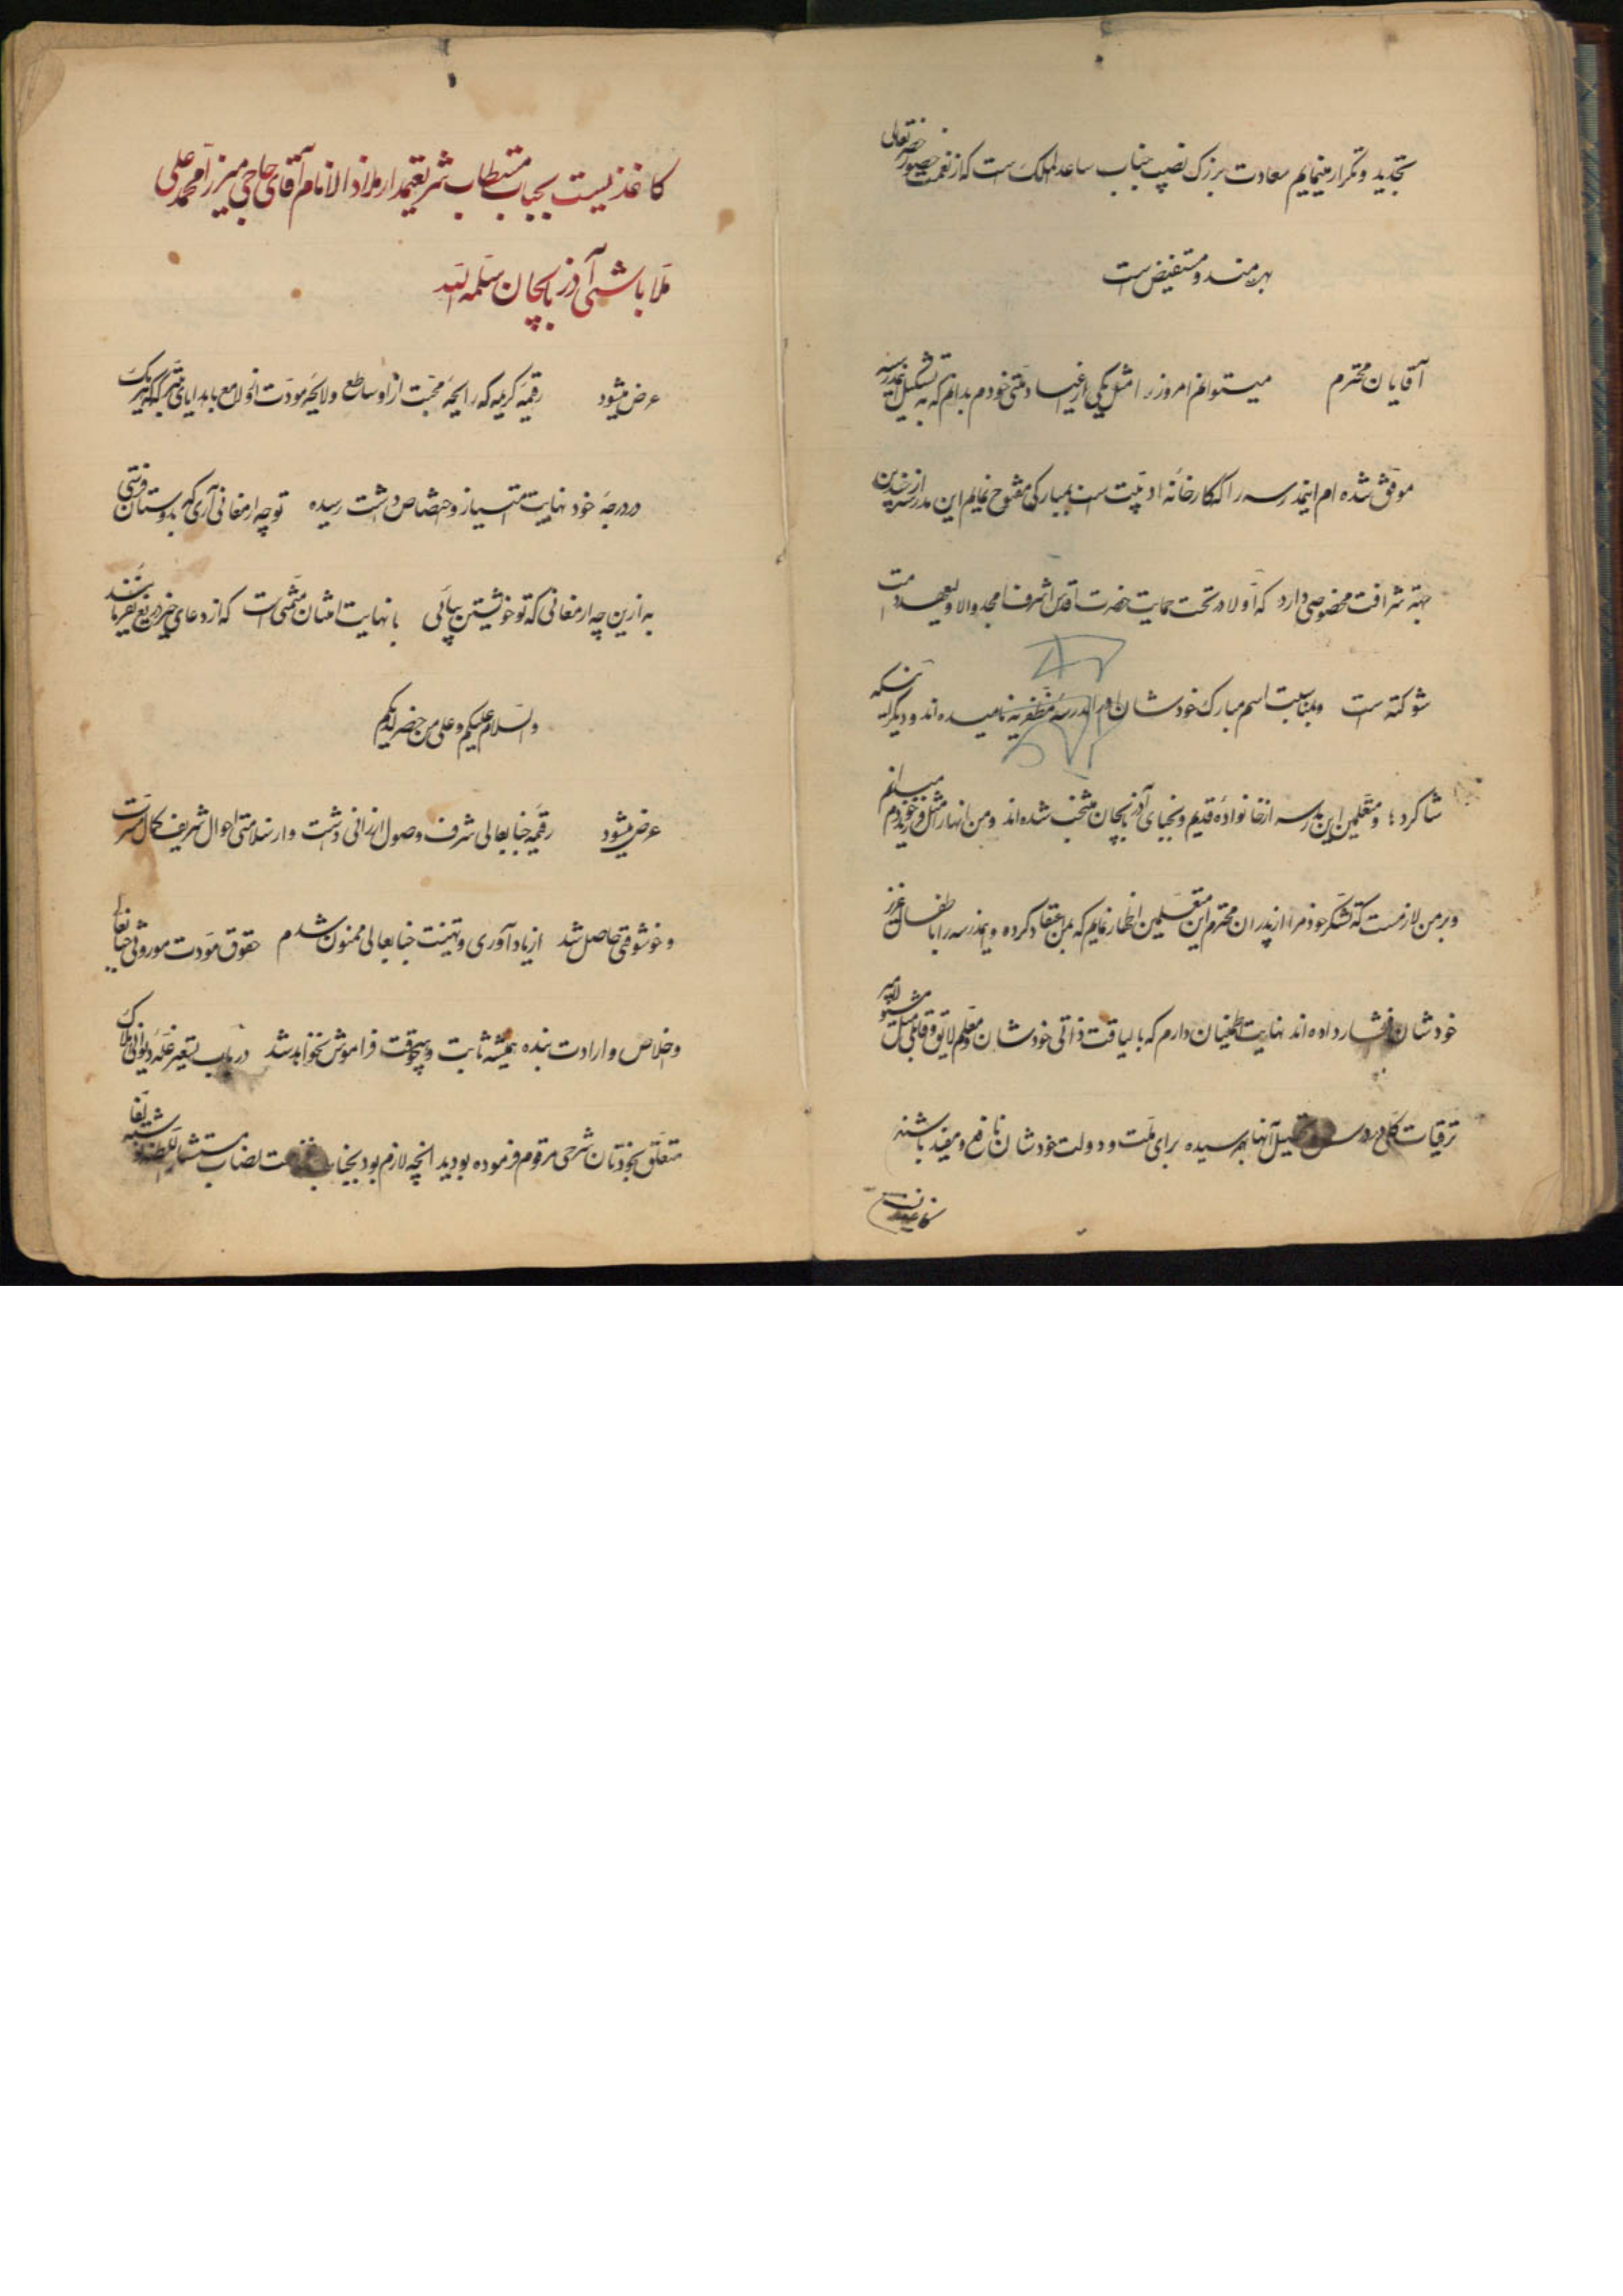 تجدید و تکرار مینمایم سعادت بزرگ نصیب جناب ساعدالملک است که از نعمت حضور حضرتعالی
بهره‌مند و مستفیض است
آقایان محترم میتوانم امروز را مثل یکی از اعیاد ملتی خودم بدانم که به تشکیل مدرسه
موفق شده‌ام اینمدرسه را که کارخانه ادبیت است بمبارکی مفتوح نمایم این مدرسه از چندین
جهة شرافت مخصوصی دارد که اولا در تحت حمایت حضرت اقدس اشرف امجد والا ولیعهد دامت
شوکته است و بمناسبت اسم مبارک خودشان اورا مدرسه مظفریه نامیده‌اند و دیگر اینکه
شاگردها و متعلمین این مدرسه از خانواده قدیم و نجبای آذربایجان منتخب شده‌اند و من انها را مثل فرزند خودم میدانم
و بر من لازمست که تشکر خودم را از پدران محترم این متعلمین اظهار نمایم که بمن اعتقاد کرده و اینمدرسه را با اطفال عزیز
خودشان داده‌اند نهایت اطمینان دارم که با لیاقت ذاتی خودشان و معلم لایق و قابل مثل
ترقیات کلی در درس و تحصیل آنها بهم رسیده برای ملت و دولت خودشان نافع و مفید باشند
کاغذیست بجناب مستطاب شریعتمدار ملاذ الانام آقای حاجی میرزا محمد علی
ملا باشی آذربایجان سلمه الله
عرض میشود رقیمه کریمه که رایحه محبت از او ساطع و لایحه مودت از او لامع با هدایای متبرکه که هر یک
در درجه خود نهایت امتیاز و اختصاص داشت رسیده تو چه ارمغانی آری که بدوستان فرستی
به ازین چه ارمغانی که تو خویشتن بیائی با نهایت امتنان متمنی است که از دعای خیر دریغ نفرمایند
والسلام علیکم و علی من حضر لدیکم
عرض میشود رقیمه جنابعالی شرف وصول ارزانی داشت و از سلامتی احوال شریف کمال مسرت
و خوشوقتی حاصل شد از یادآوری و تهنیت جنابعالی ممنون شدم حقوق مودت موروثی جنابعالی
و اخلاص و ارادت بنده همیشه ثابت و هیچوقت فراموش نخواهد شد در باب تسعیر غله دیوانی املاک
متعلق بخودتان شرحی مرقوم فرموده بودید انچه لازم بود بجناب نصاب مستشار